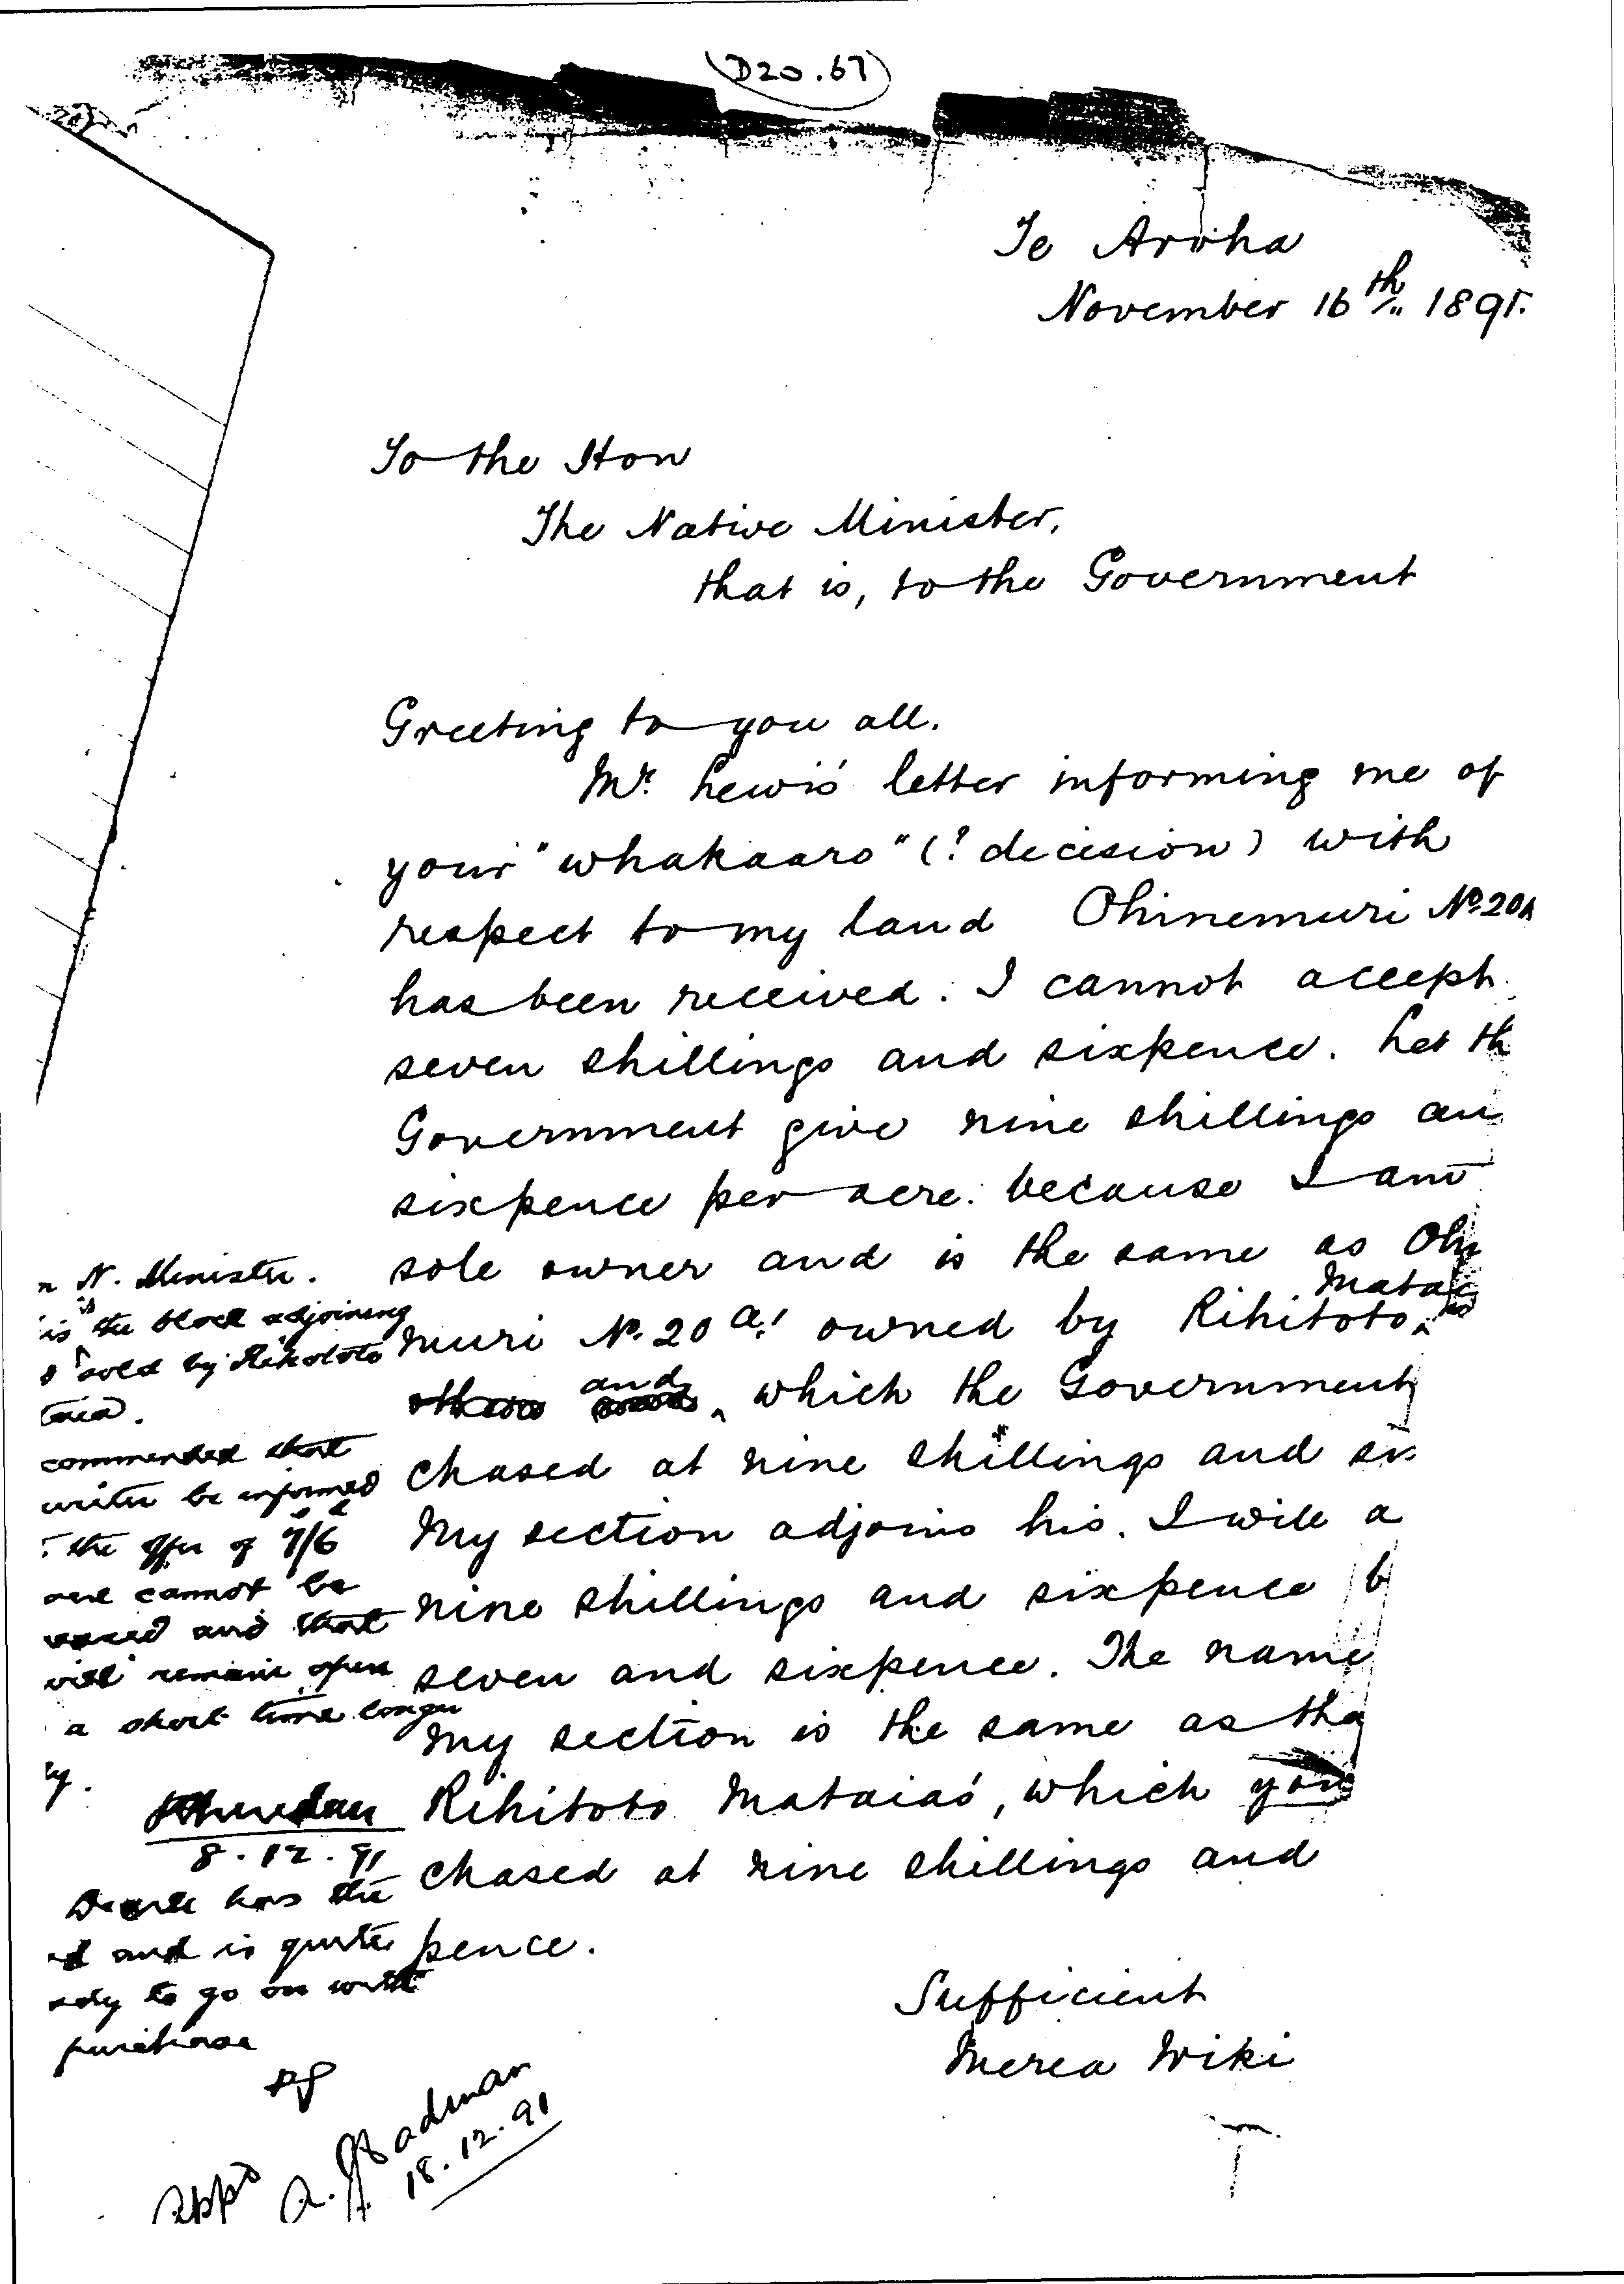 (D20.67)
Te Aroha
November 16th 1891.
To the Hon
The Native Minister,
that is, to the Government
Greeting to you all.
Mr. Lewis' letter informing me of
your "whakaaro" (? decision) with
respect to my land Ohinemuri No. 20A
has been received. I cannot accept
seven shillings and sixpence. Let th
Government give nine shillings an
sixpence per acre. because I am
sole owner and is the same as Ohi
Matai
muri No. 20 a! owned by Rihitoto
others and which the Government
chased at nine shillings and si
My section adjoins his. I will a
nine shillings and sixpence b
seven and sixpence. The name
my section is the same as tha
Rihitoto Mataia's, which you
chased at nine shillings and
pence.
Sufficient
Merea Wiki
n N. Minister.
is is the block adjoining
sold by Rihitoto
taia.
commended that
writer be informed
the offer of 7/6
acre cannot be
and that
will remain open
a short time longer
ly.
8.12.91
has the
d and is quite
ady to go on with
purchase
Appd
A. J. Cadman
18.12.91